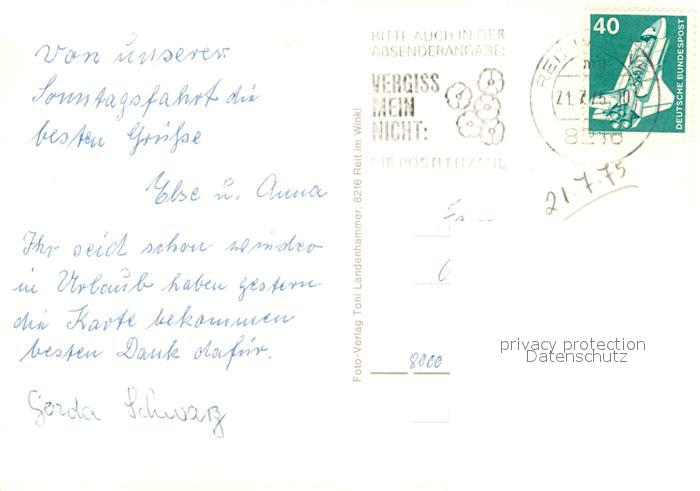 von unserer
Sonntagsfahrt die
besten Grüße
Else u. Anna
Ihr seid schon wieder
in Urlaub haben gestern
die Karte bekommen
besten Dank dafür.
Gerda Schwarz
Foto-Verlag Toni Landenhammer, 8216 Reit im Winkl
BITTE AUCH IN DER
ABSENDERANGABE:
VERGISS
MEIN
NICHT:
DIE POSTLEITZAHL
REIT IM
21.7.75
8216
40
DEUTSCHE BUNDESPOST
21.7.75
8000
privacy protection
Datenschutz